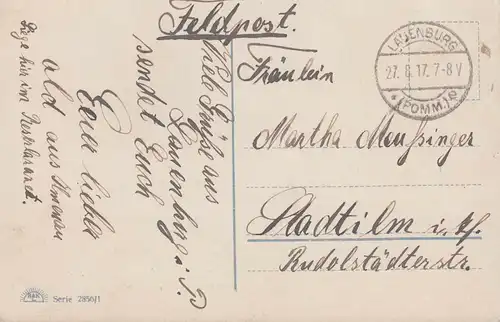 Feldpost.
Viele Grüße aus
Lauenburg i. P.
sendet Euch
Euer lieber
ald aus Ilmenau
Liege hier im Reservelazaret.
LAUENBURG
27. 6. 17. 7-8 V
* (POMM.) c
Fräulein
Martha Meußinger
Stadtilm i. Th.
Rudolstädterstr.
Serie 2856/1